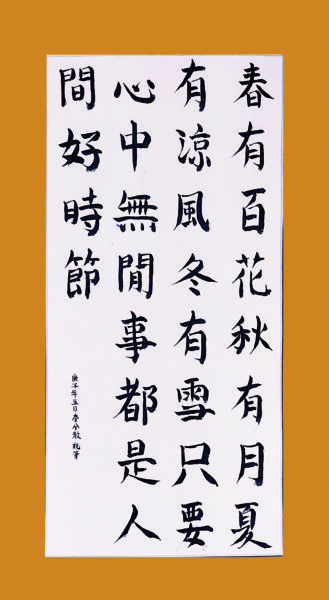 春有百花秋有月夏
有涼風冬有雪只要
心中無閒事都是人
間好時節